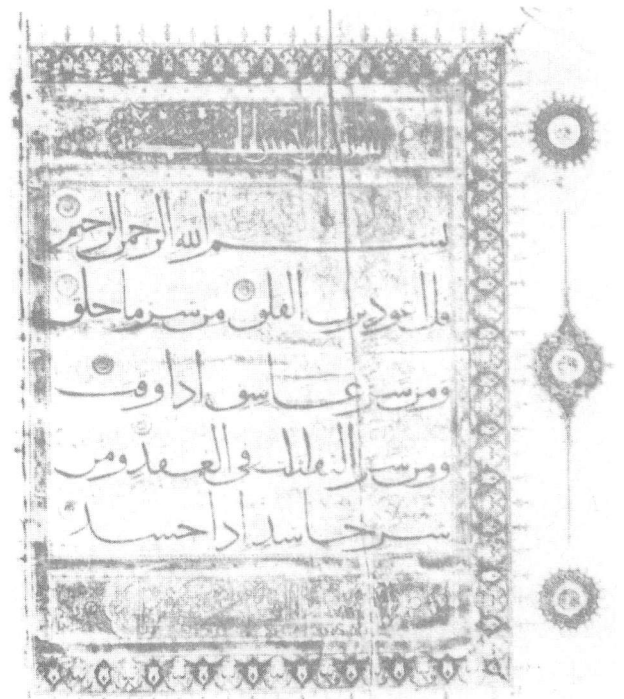 بسم الله الرحمن الرحيم
قل اعوذ برب الفلق من شر ما خلق
ومن شر غاسق اذا وقب
ومن شر النفثت فى العقد ومن
شر حاسد اذا حسد